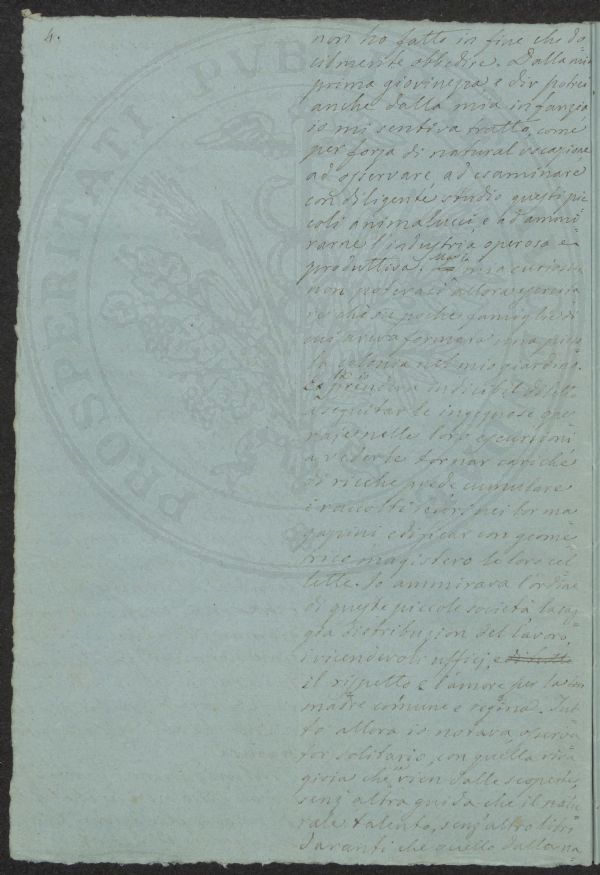 4.
non ho fatto in fine che do-
cilmente obbedire. Dalla mia
prima giovinezza e dir potrei
anche dalla mia infanzia
io mi sentiva tratto, come
per forza di natural vocazione
ad osservare ad esaminare
con diligente studio questi pic-
coli animalucci e ad ammi-
rarne l'industria operosa e
produttiva. mia curiosi
non poteva allora esercita
re che su poche famiglie di
cui aveva formato una picco
la colonia nel mio giardino.
Io prendeva indicibil diletto
a seguitar le ingegnose ope-
raie nelle loro escursioni
a vederle tornar cariche
di ricche prede cumulare
i raccolti nei lor ma
gazzini edificar con geome-
trico magistero le loro cel-
lette. Io ammirava l'ordine
di queste piccole società la sag-
gia distribuzion del lavoro,
i vicendevoli uffici, e
il rispetto e l'amore per la lor
madre comune e regina. Tut-
to allora io notava, osserva
tor solitario, con quella viva
gioia che vien dalle scoperte,
senz'altra guida che il natu-
rale talento, senz'altro libri
davanti che quello della na-
PROSPERITATI PVB